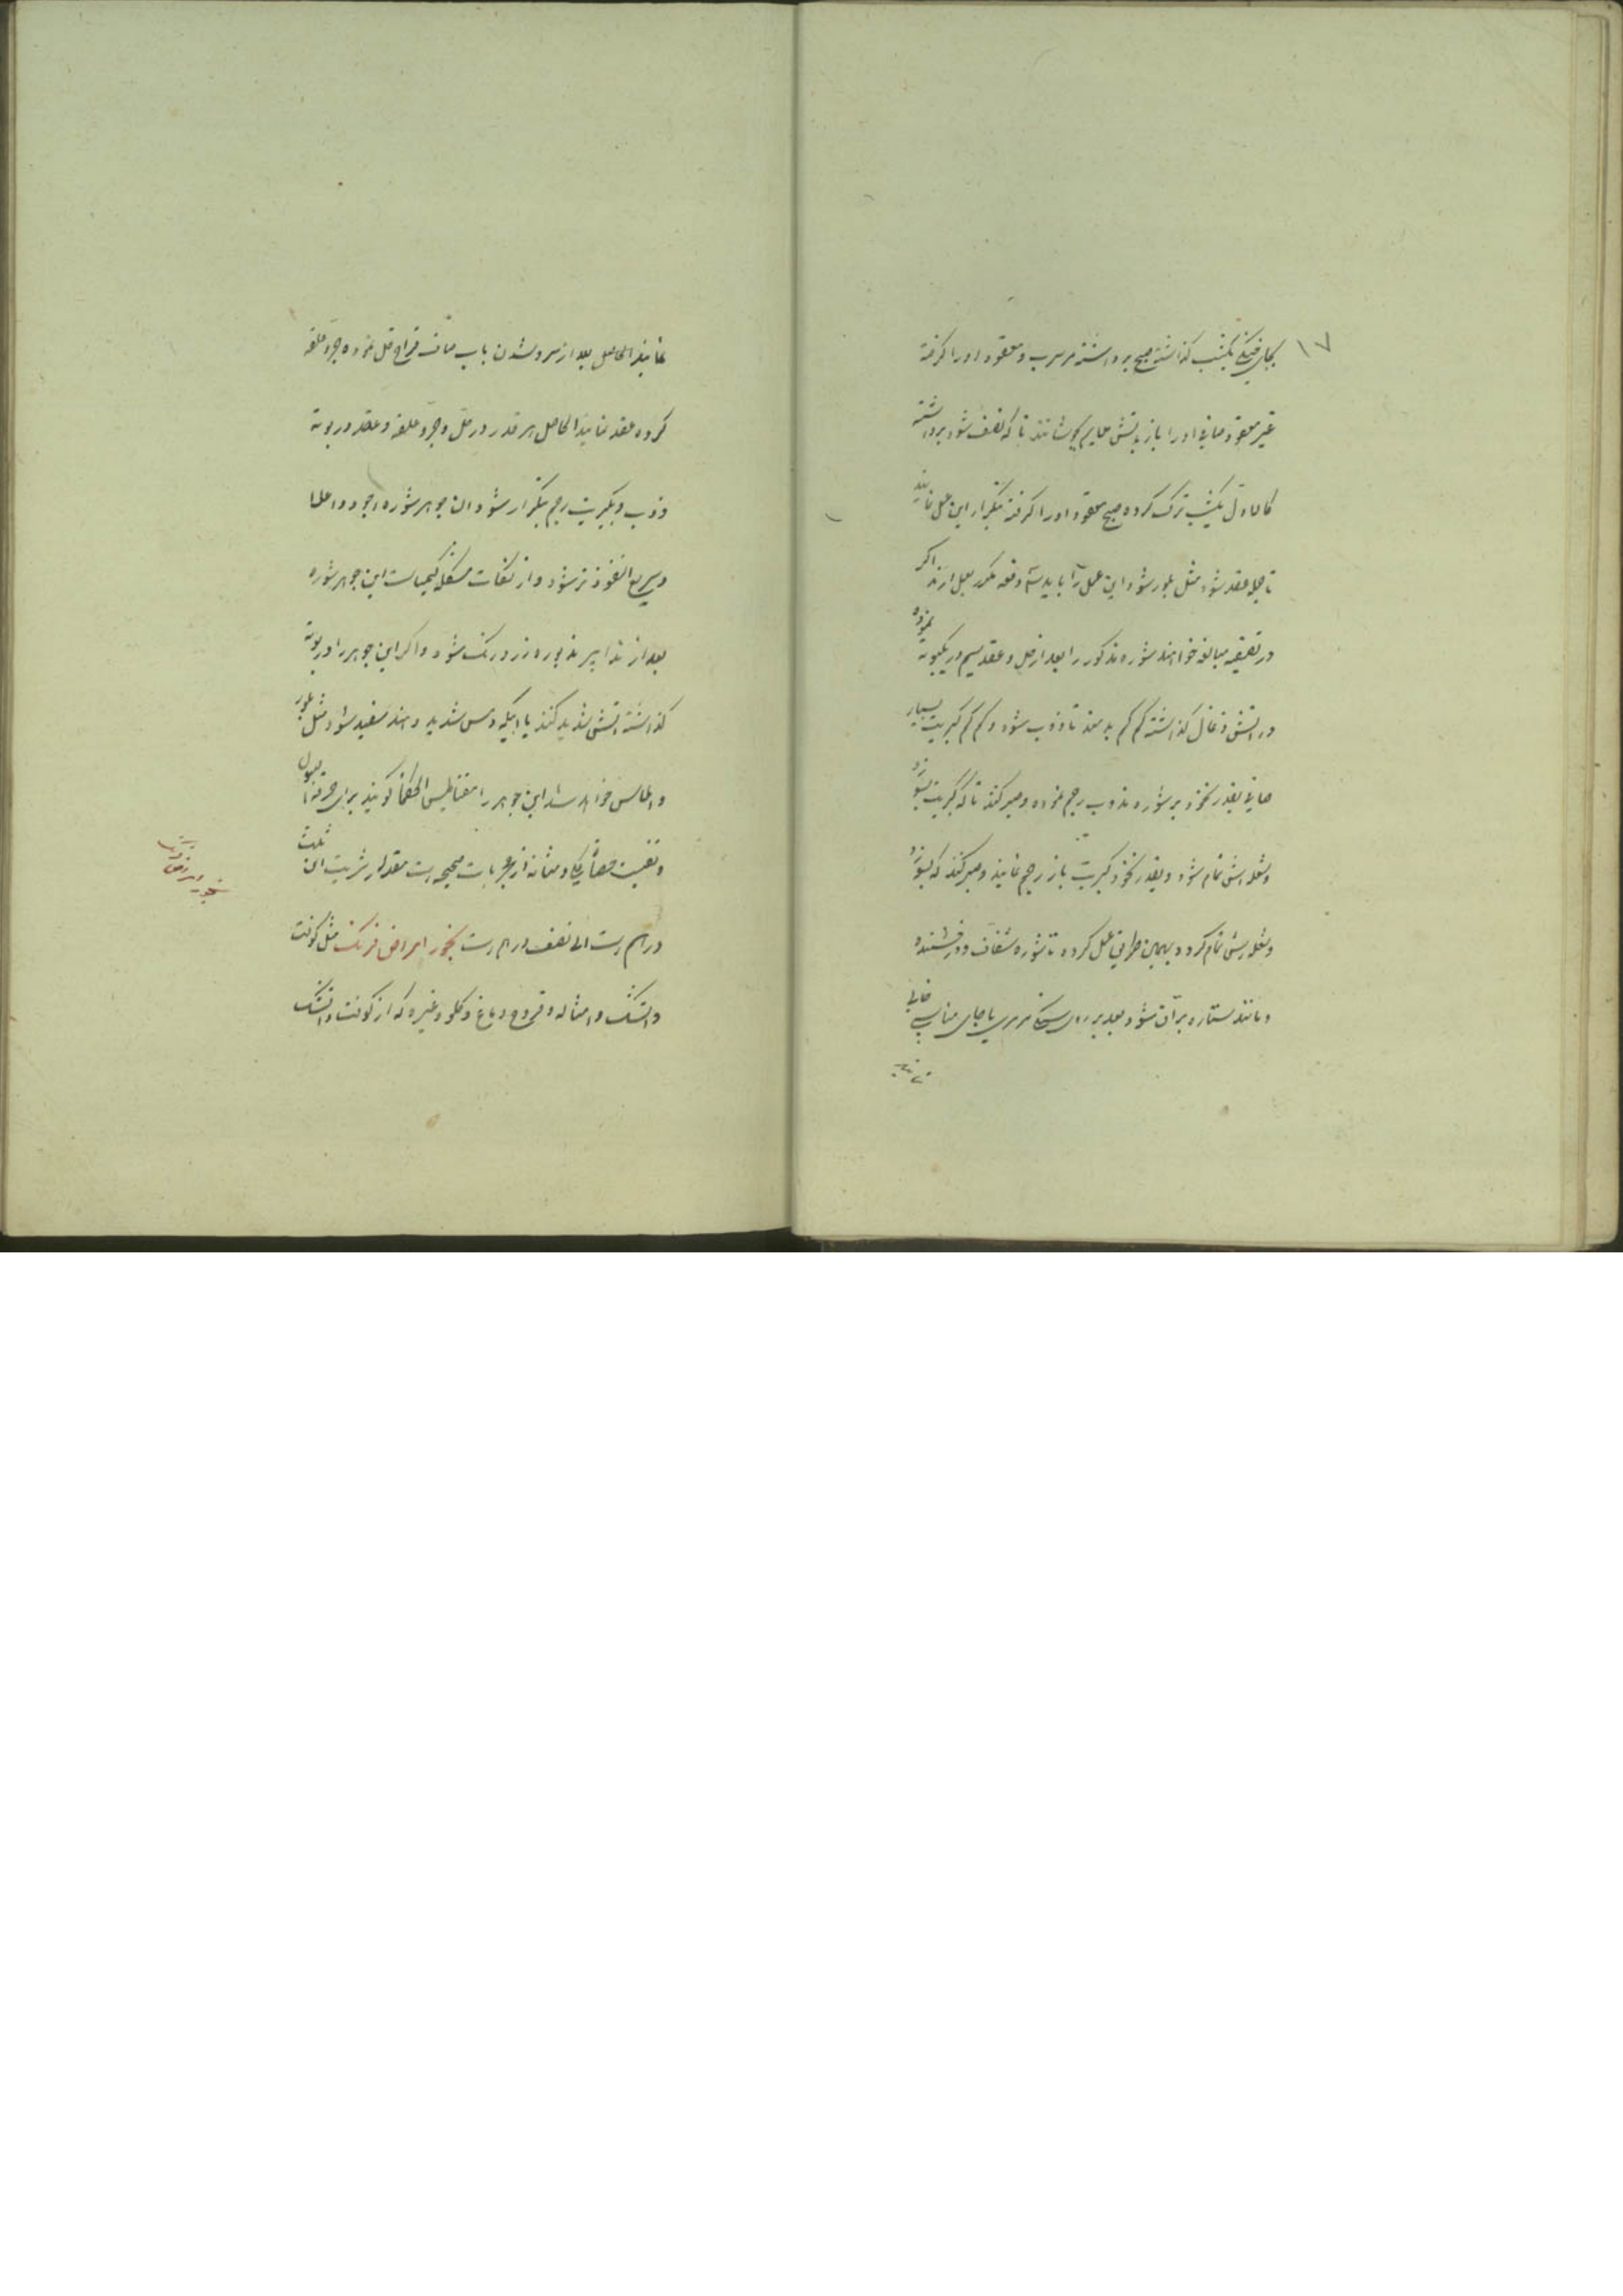 ۱۷
بجای خنکی یکشب گذاشته صبح برداشته مرسب و معقود او را گرفته
غیر معقود صافی او را باز باتش ملایم بجوشانند تا که نصف شود برداشته
کالاول یکشب ترک کرده صبح معقود او را گرفته بتکرار این عمل نمایند
تا جمله عقد شود مثل بلور شود این عمل را باید سه دفعه مکرر بعمل ارند اگر
در تصفیه مبالغه خواهند شوره مذکور را بعد از حل و عقد سیم در یکبوته نموده
در اتش ذغال گذاشته کم کم بدمند تا ذوب شود و کم کم کبریت بسیار
صافی بقدر نخود بر شوره مذوب رجم نموده و صبر کنند تا که کبریت بسوزد
و شعله اش تمام شود و بقدر نخود کبریت باز رجم نمایند و صبر کنند که بسوزد
و شعله اش تمام کردد بهمین طریق عمل کرده تا شوره شفاف و درخشنده
و مانند ستاره براق شود بعد بر روی سنک مرمری یا جای مناسب خالی
نمایند
نمایند الحاصل بعد از سرد شدن باب صاف قراح حل نموده جر و علقه
کرده عقد نمایند الحاصل هر قدر در حل و جر و علقه و عقد در بوته
و ذب و بکبریت رجم بتکرار شود ان جوهر شوره اجود و اعلا
و سریع النفوذ تر شود و از نکات مشکله کیمیاست این جوهر شوره
بعد از تدابیر مذبوره زرد رنک شود و اگر این جوهر را در بوته
گذاشته اتش شدید کنند یا بیکه و مس شدید دهند سفید شود مثل بلور
و الماس خواهد شد این جوهر را مقناطیس الحکما گویند برای حرقة البول
و تفتیت حصاة کلی و مثانه از مجربات صحیحه است مقدار شربت ان ثلث
درهم است الی نصف درهم است بخور امراض فرنک مثل کوفت
و اتشک و امثاله و قروح دماغ و کلو و غیره که از کوفت و اتشک
بخور امراض فرنک